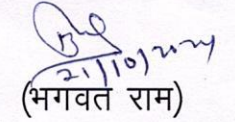 21/10/2024
(भगवत राम)